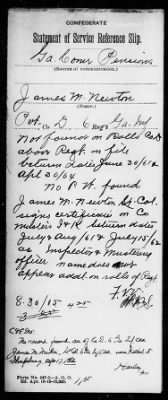 CONFEDERATE
Statement of Service Reference Slip.
Ga. Comr. Pensions
(Source of communication.)
James M. Newton
(Name.)
Pvt. Co. D. 6 Reg't Ga. Inf
Not found on Rolls Co. D
above Regt. on file
between dates June 30/61 &
April 30/64
No P.W. found
James M. Newton Lt. Col.
signs certificate on Co
musters J & R between dates
July & Aug/61 & July 15/62
as Inspector & Mustering
officer name does not
appear addl. on rolls of Regt
8-30/15
No record found as of Co. D. 6 Ga. Inf
James M. Newton
Sharpsburg Sept 17, 1862